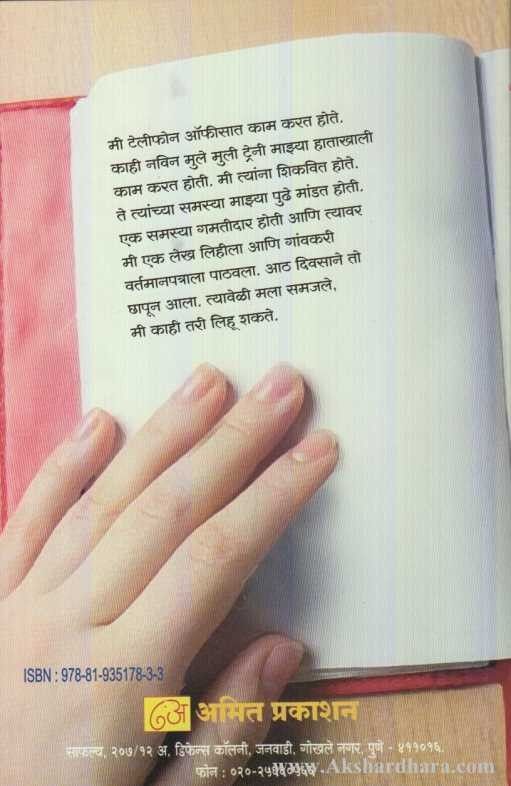 मी टेलीफोन ऑफीसात काम करत होते.
काही नविन मुले मुली ट्रेनी माझ्या हाताखाली
काम करत होती. मी त्यांना शिकवित होते.
ते त्यांच्या समस्या माझ्या पुढे मांडत होती.
एक समस्या गमतीदार होती आणि त्यावर
मी एक लेख लिहीला आणि गांवकरी
वर्तमानपत्राला पाठवला. आठ दिवसाने तो
छापून आला. त्यावेळी मला समजले,
मी काही तरी लिहू शकते.
ISBN : 978-81-935178-3-3
अमित प्रकाशन
साफल्य, २०७/१२ अ, डिफेन्स कॉलनी, जनवाडी, गोखले नगर, पुणे - ४११०१६.
फोन : ०२०-
www.Akshardhara.com